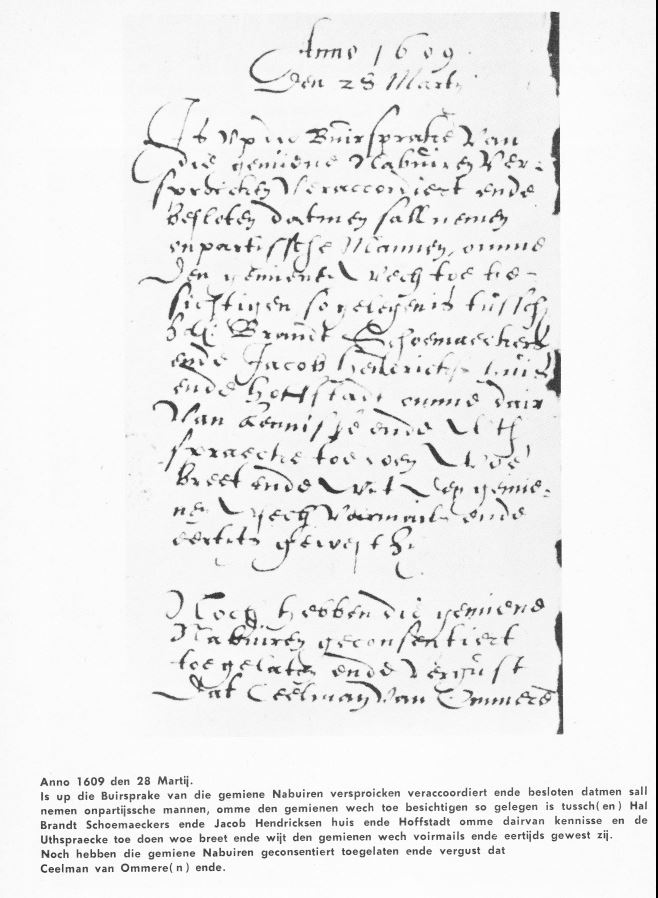 Anno 1609
Den 28 Martij
Is Up die Buirsprake Van
die gemiene Nabuiren Ver-
sproicken Veraccordiert ende
besloten datmen sall nemen
onpartijssche Mannen, omme
den gemienen Wech toe be-
sichtigen so gelegen is tussch
Hal Brandt Schoemaeckers
ende Jacob Hendricks huis
ende Hoffstadt omme dair
Van kennisse ende Uth
spraecke toe doen Woe
breet ende Wijt den gemie-
nen Wech Voirmails ende
eertijts gewest zij
Noch hebben die gemiene
Nabuiren geconsentiert
toegelaten ende Vergust
Dat Ceelman Van Ommeren
Anno 1609 den 28 Martij.
Is up die Buirsprake van die gemiene Nabuiren versproicken veraccordiert ende besloten datmen sall
nemen onpartijssche mannen, omme den gemienen wech toe besichtigen so gelegen is tussch(en) Hal
Brandt Schoemaeckers ende Jacob Hendricksen huis ende Hoffstadt omme dairvan kennisse en de
Uthspraecke toe doen woe breet ende wijt den gemienen wech voirmails ende eertijds gewest zij.
Noch hebben die gemiene Nabuiren geconsentiert toegelaten ende vergust dat
Ceelman van Ommere(n) ende.